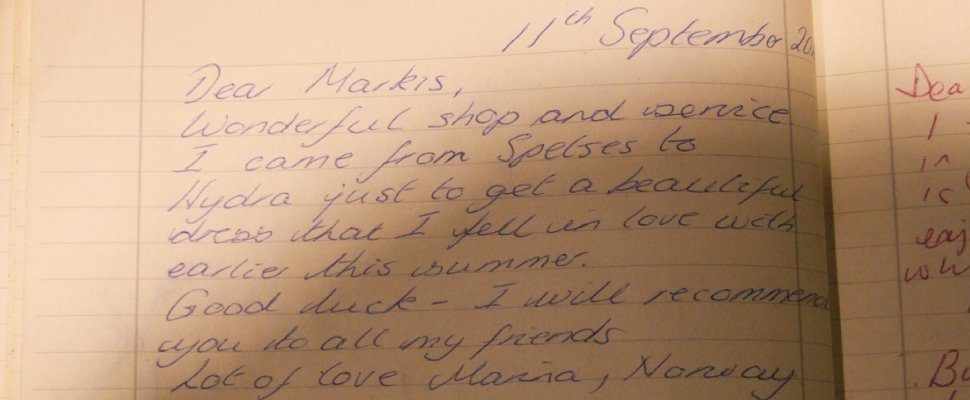 11th September 20
Dear Markis,
Wonderful shop and service.
I came from Spetses to
Hydra just to get a beautiful
dress that I fell in love with
earlier this summer.
Good luck - I will recommend
you to all my friends
Lot of love Marina, Norway
Dea
I
in
is
Bu